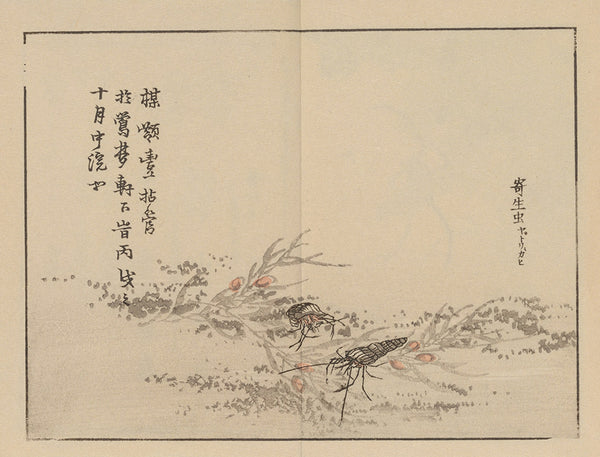 寄生虫 ヤトリカヒ
楳 拈管
於鶯梦軒下旹丙戌之
十月中浣也